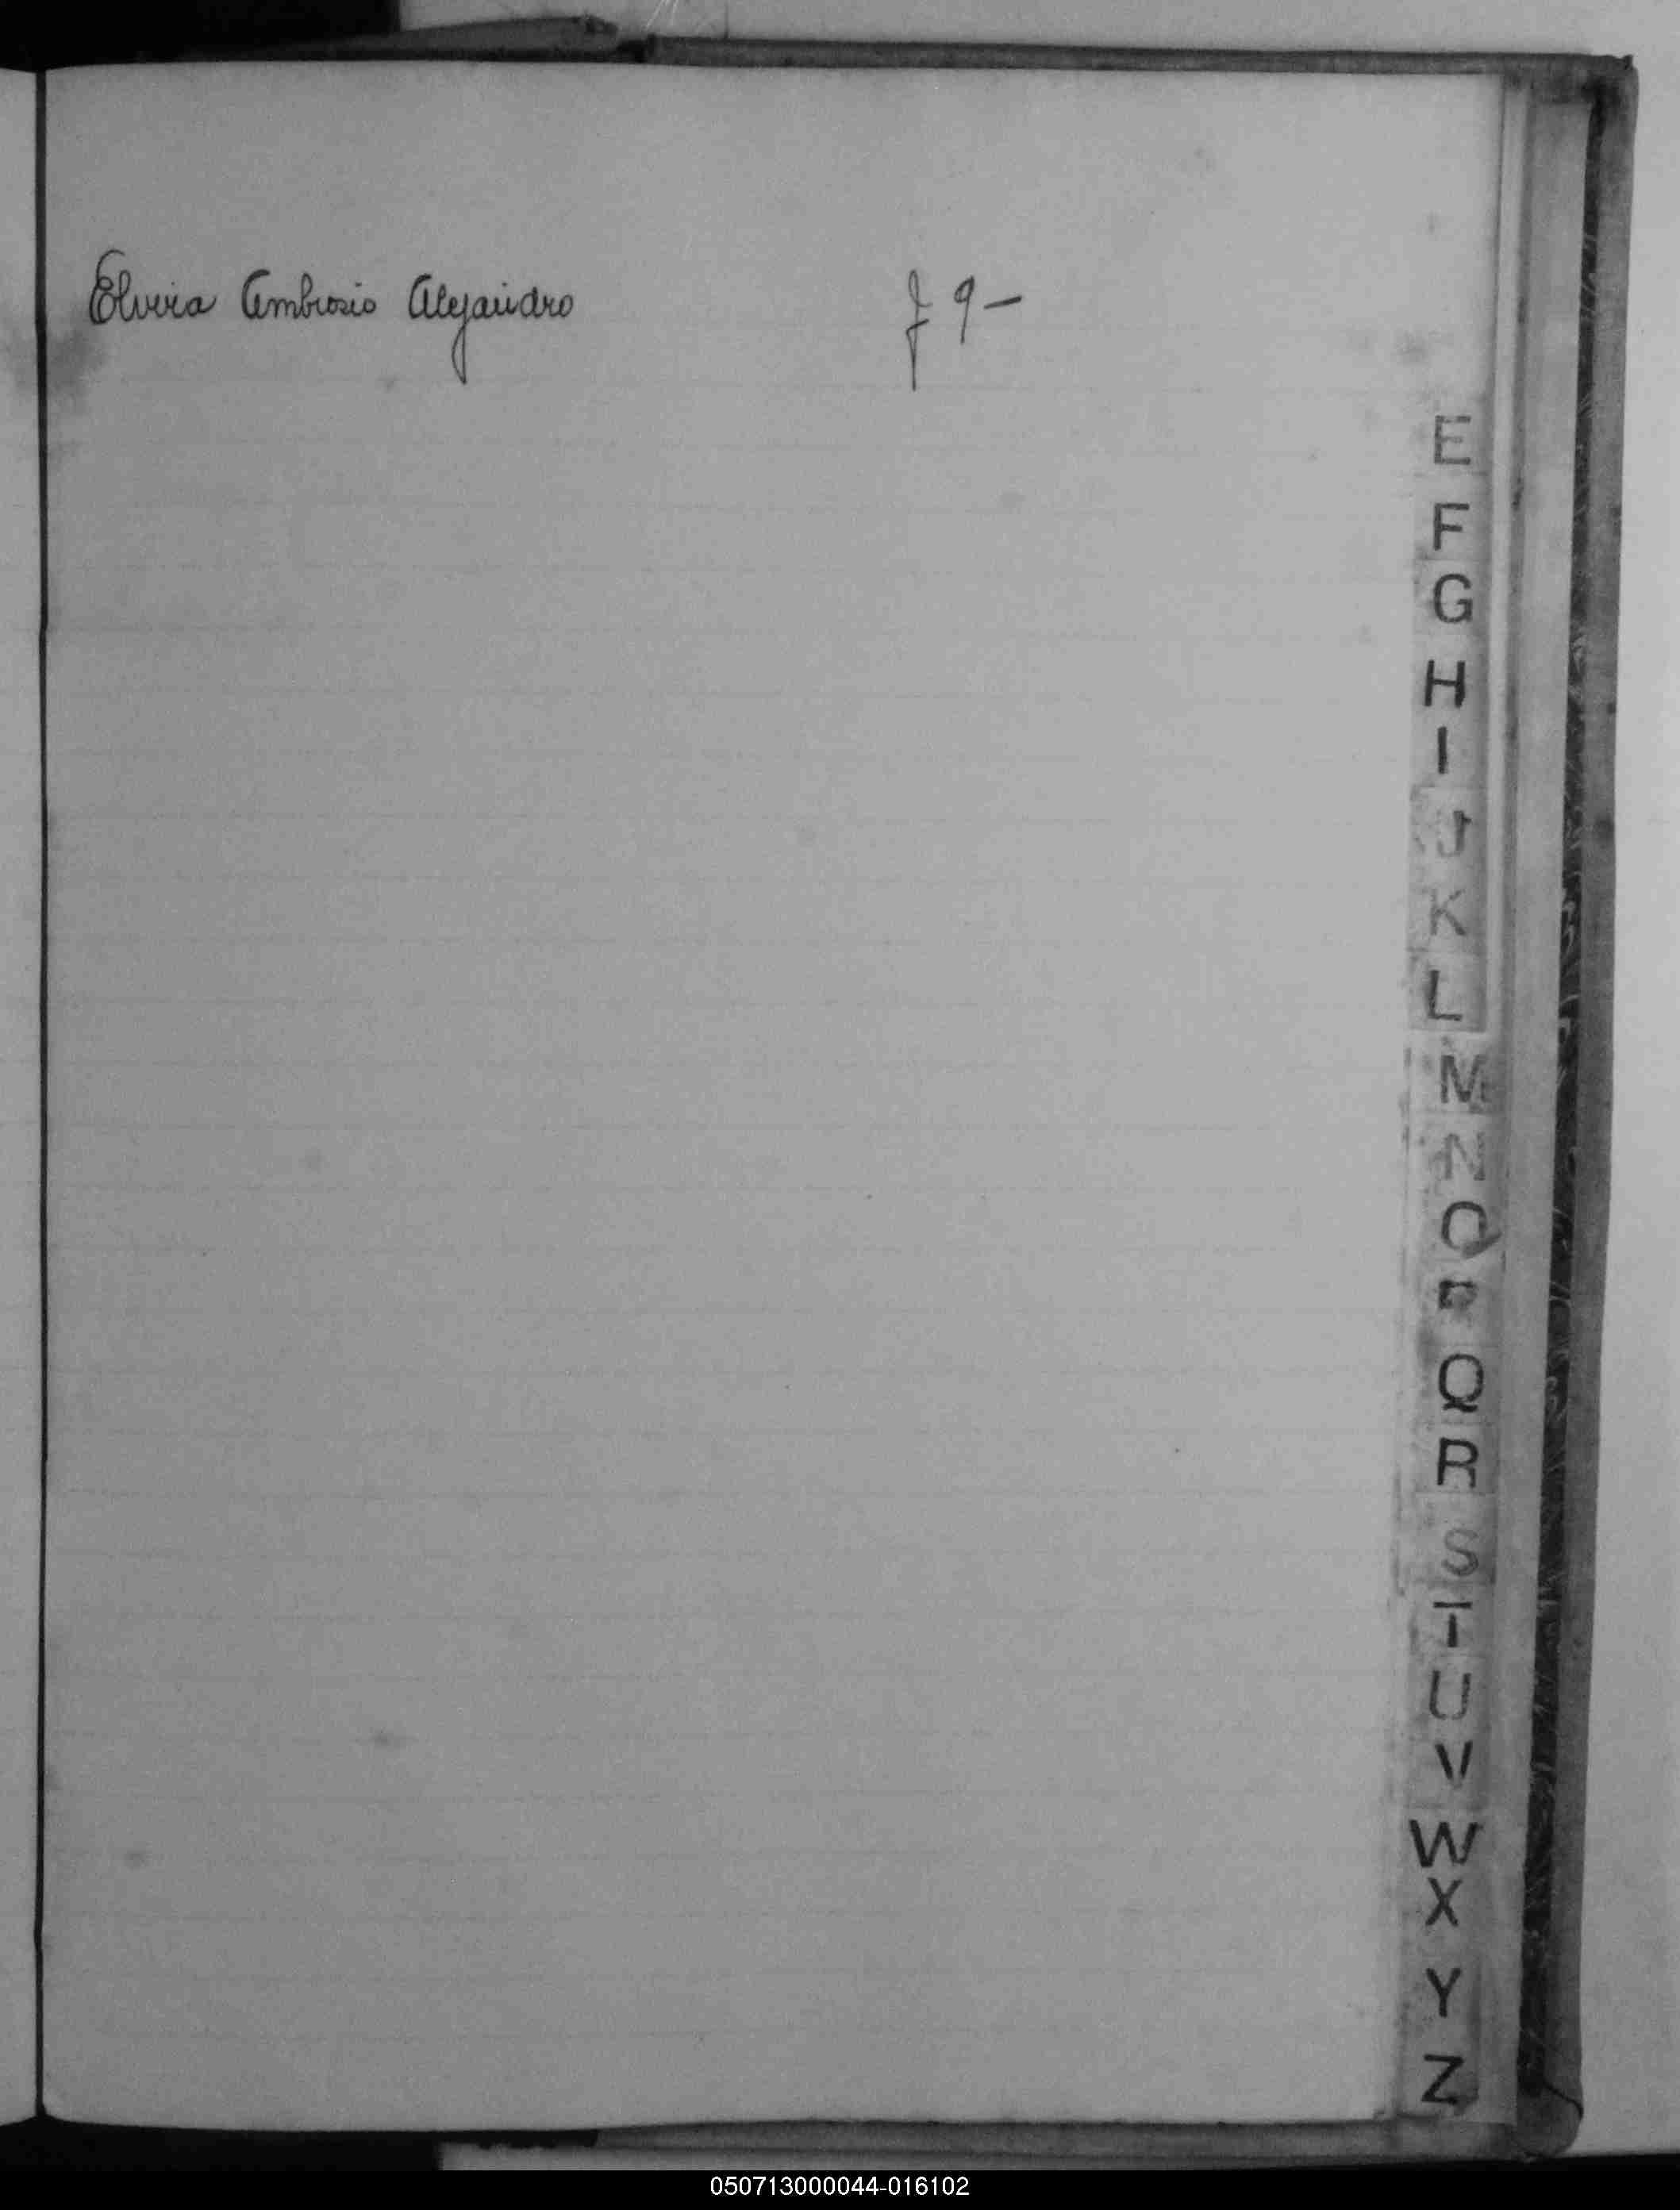 Elvira Ambrosio Alejandro f 9 -
E
F
G
H
I
J
K
L
M
N
O
P
Q
R
S
T
U
V
W
X
Y
Z
050713000044-016102